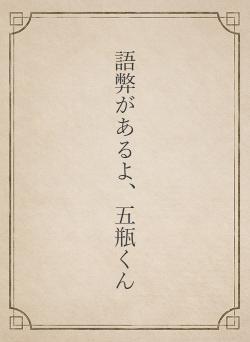 語弊があるよ、五瓶くん